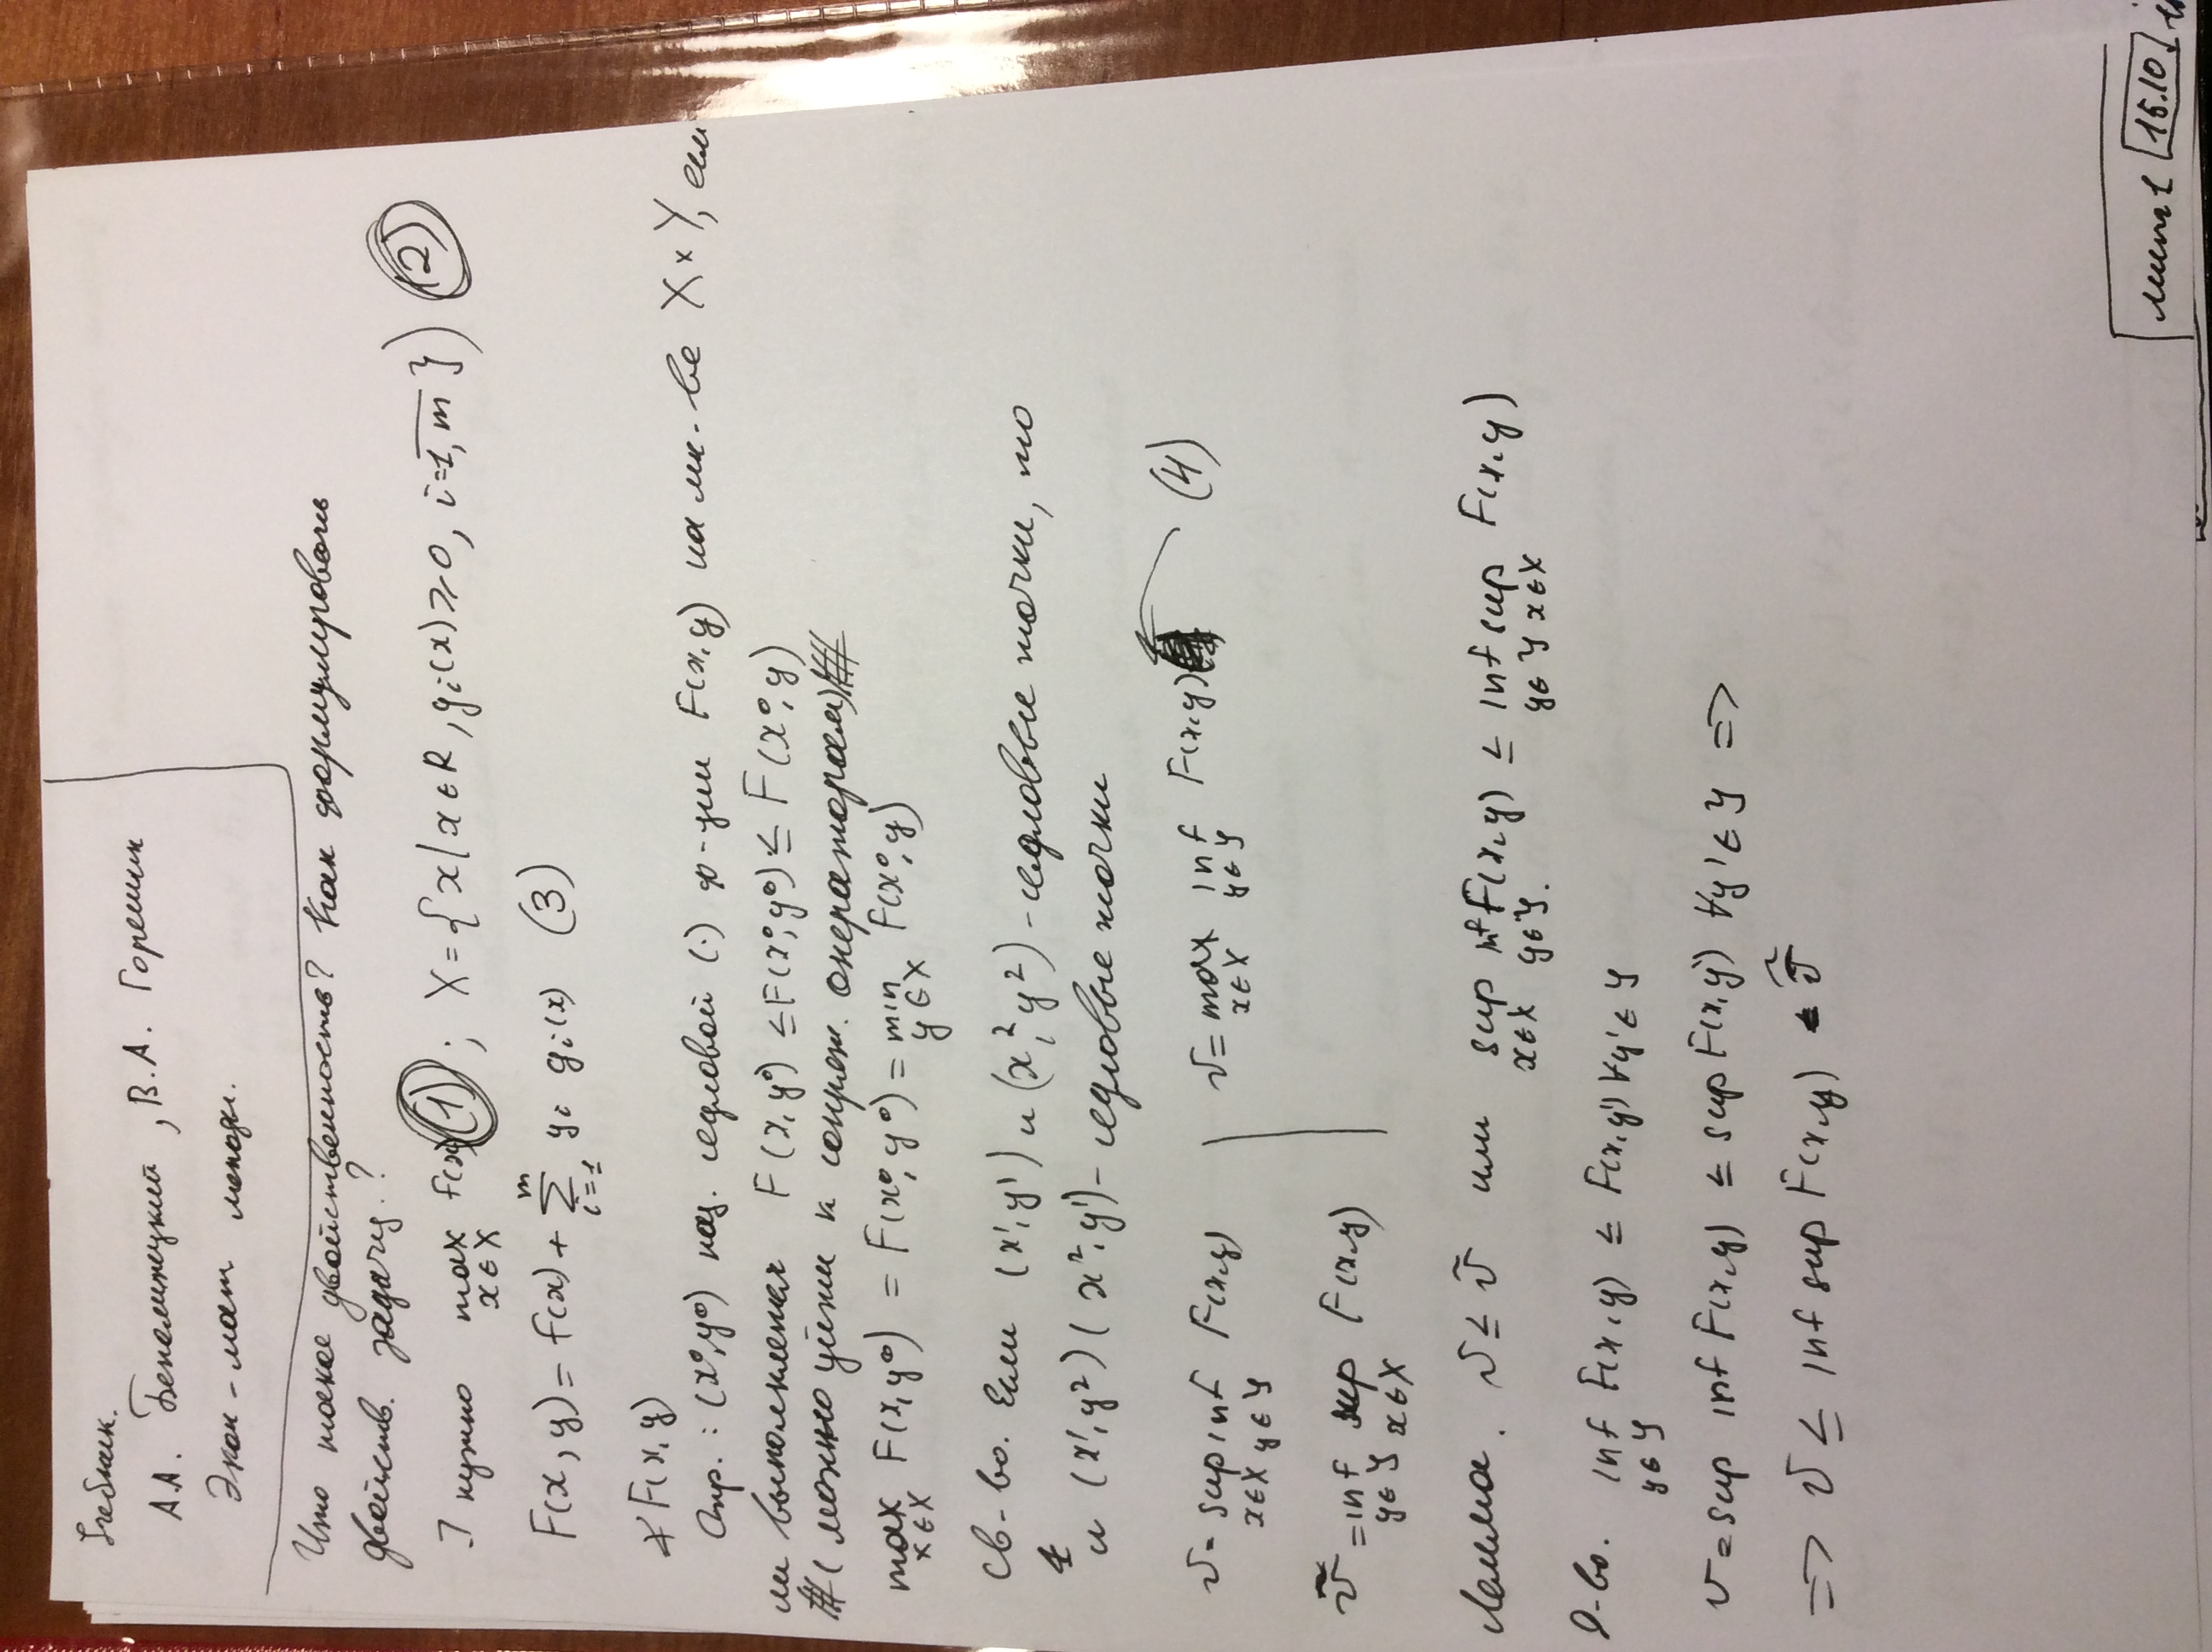 Учебник.
А.А. Белолипецкий, В.А. Горелик
Экон-мат методы.
Что такое двойственность? Как формулировать
двойств. задачу.?
] нужно max f(x) (1); X={x|x∈R, gᵢ(x)≥0, i=1,m̅}) (2)
x∈X
F(x,y)= f(x)+ Σ yᵢ gᵢ(x) (3)
m
i=1
∢ F(x,y)
Опр.: (x⁰,y⁰) наз. седловой (·) ф-ции F(x,y) на мн-ве X×Y, если
ли выполняется F(x,y⁰) ≤ F(x⁰,y⁰) ≤ F(x⁰,y)
(можно уйти к сопряж. операторам)
max F(x,y⁰) = F(x⁰,y⁰) = min F(x⁰,y)
x∈X y∈X
Св-во. Если (x¹,y¹) и (x²,y²) - седловые точки, то
1
и (x¹,y²) (x²,y¹) - седловые точки
v= sup inf F(x,y) | v= max inf F(x,y) (4)
x∈X y∈Y x∈X y∈Y
ṽ = inf sup F(x,y)
y∈Y x∈X
Лемма. v ≤ ṽ или sup inf F(x,y) ≤ inf sup F(x,y)
x∈X y∈Y. y∈Y x∈X
Д-во. inf F(x,y) ≤ F(x,y') ∀y'∈Y
y∈Y
v = sup inf F(x,y) ≤ sup F(x,y') ∀y'∈Y =>
=> v ≤ inf sup F(x,y) = ṽ
лист 1 15.10